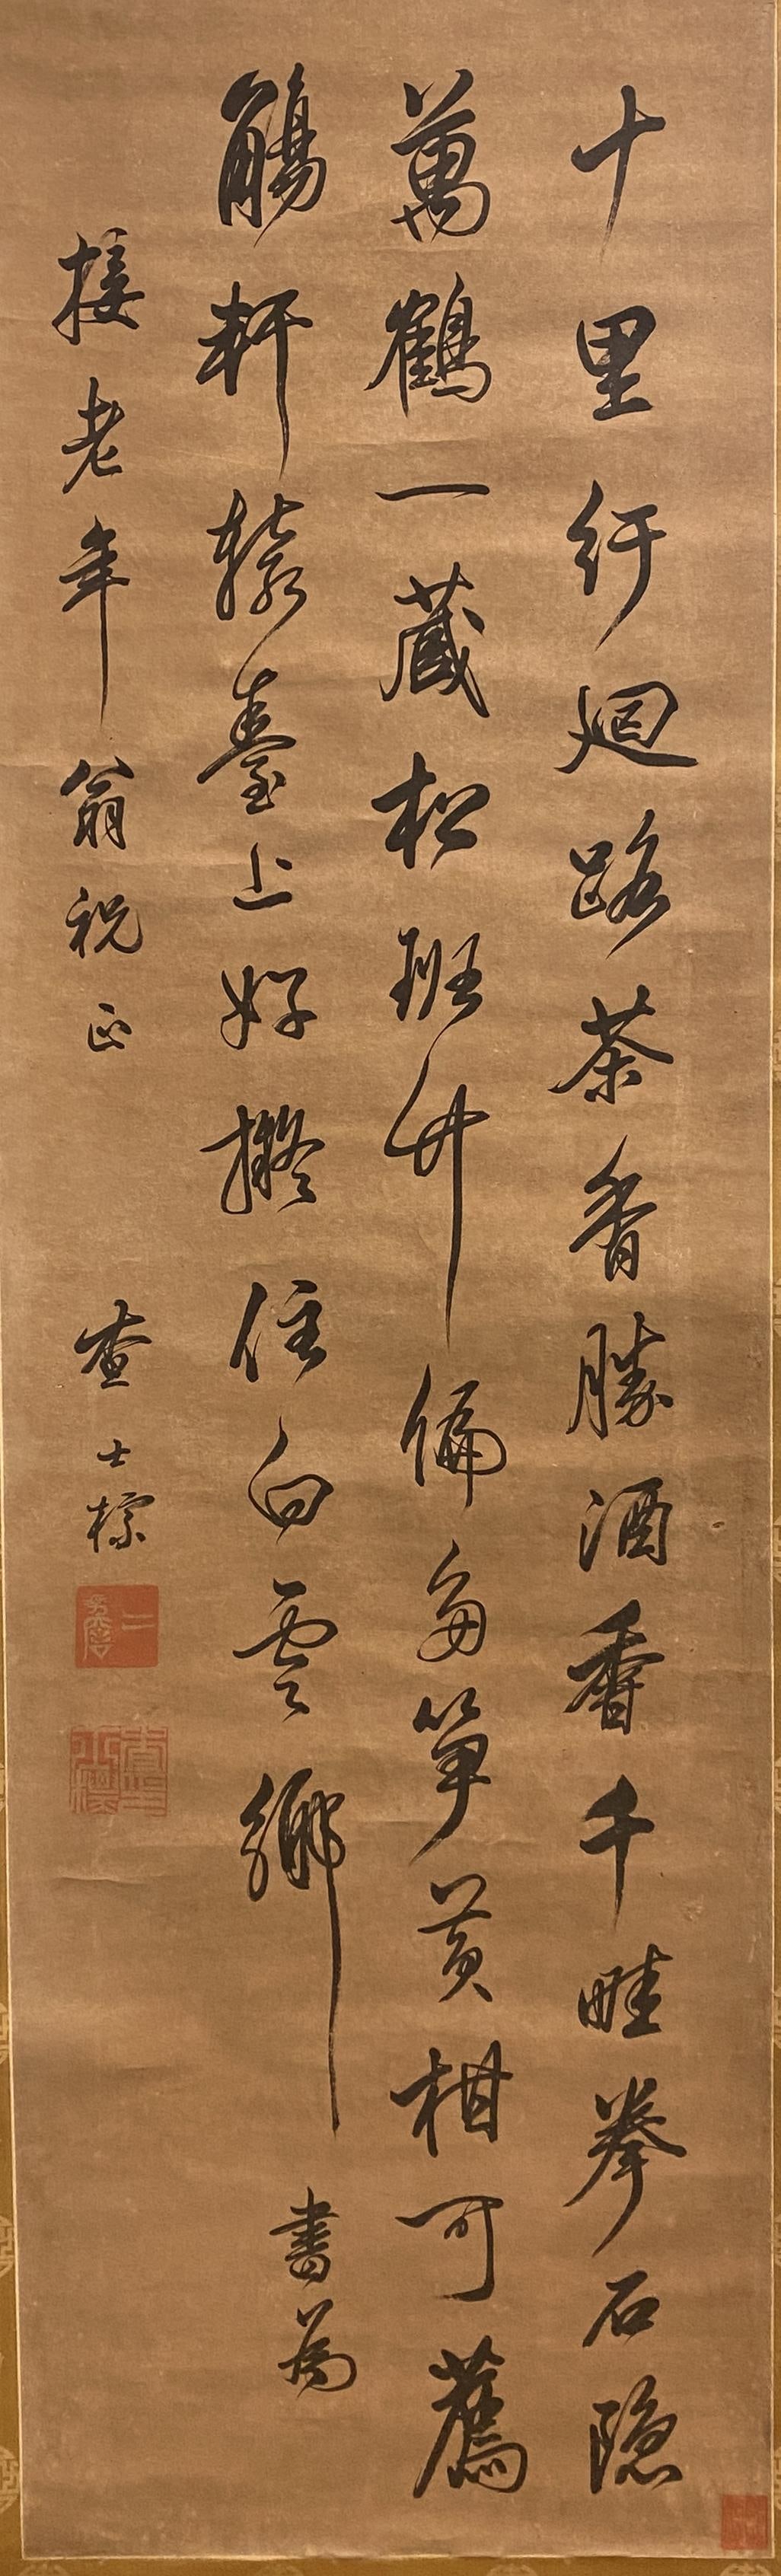 十里紆迴路茶香勝酒香千畦拳石隱
萬鶴一藏松斑竹偏多筍黃柑可薦
觴軒轅臺上好擬住白雲鄉 書為
接老年翁祝正 查士標